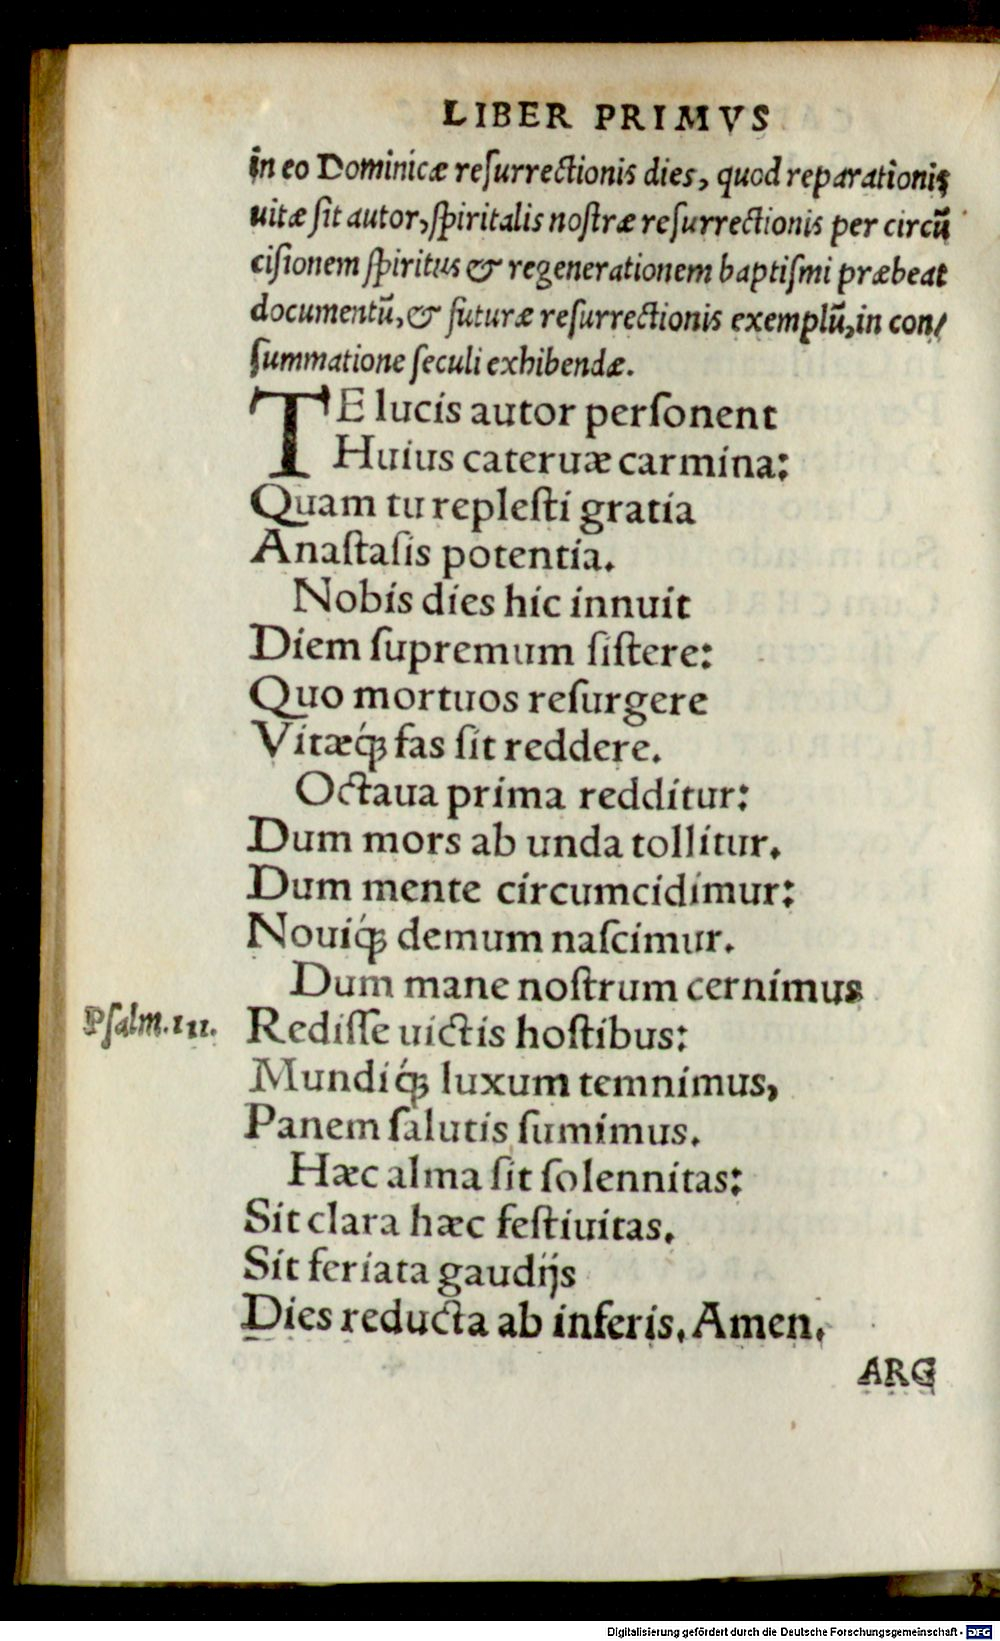 LIBER PRIMVS
in eo Dominicæ reſurrectionis dies, quod reparationis
uitæ ſit autor, ſpiritalis noſtræ reſurrectionis per circũ
ciſionem ſpiritus & regenerationem baptiſmi præbeat
documentũ, & futuræ reſurrectionis exemplũ, in con/
ſummatione ſeculi exhibendæ.
TE lucis autor perſonent
Huius cateruæ carmina:
Quam tu repleſti gratia
Anaſtaſis potentia.
Nobis dies hic innuit
Diem ſupremum ſiſtere:
Quo mortuos reſurgere
Vitæq́ꝫ fas ſit reddere.
Octaua prima redditur:
Dum mors ab unda tollitur.
Dum mente circumcidimur:
Nouiq́ꝫ demum naſcimur.
Dum mane noſtrum cernimus
Psalm.iii. Rediſſe uictis hoſtibus:
Mundiq́ꝫ luxum temnimus,
Panem ſalutis ſumimus.
Hæc alma ſit ſolennitas:
Sit clara hæc feſtiuitas.
Sit feriata gaudijs
Dies reducta ab inferis. Amen.
ARG
Digitalisierung gefördert durch die Deutsche Forschungsgemeinschaft - DFG